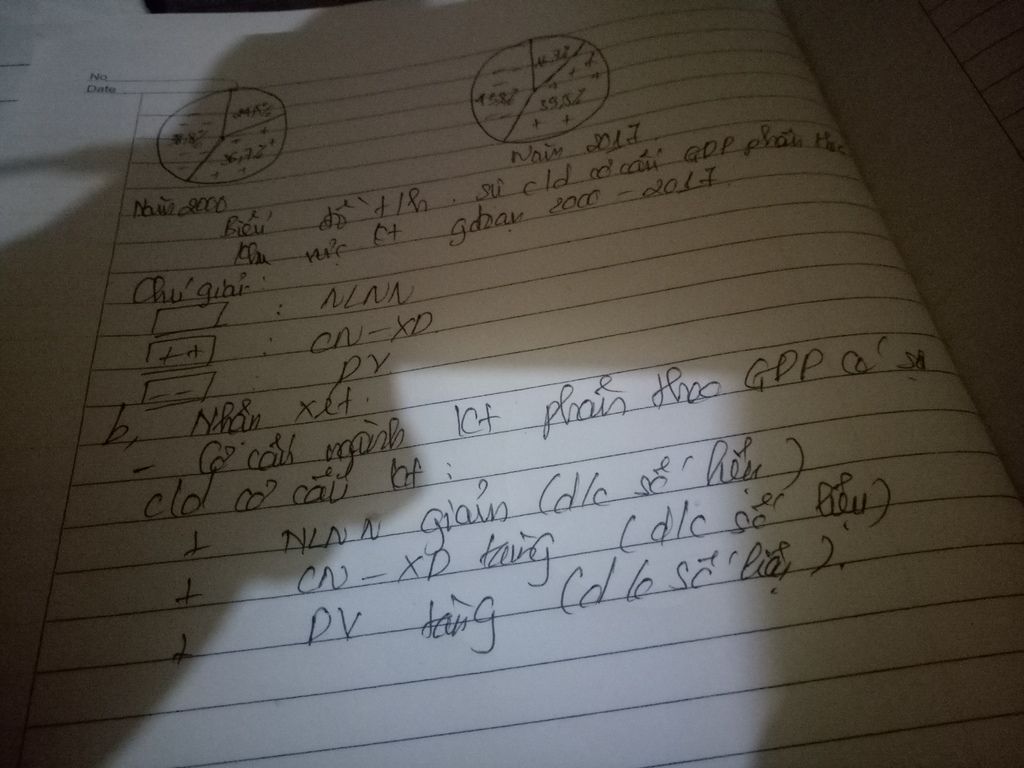 No
Date
24,5%
38,8%
36,7%
Năm 2000
39,5%
Năm 2017
Biểu đồ t/h sự c/d cơ cấu GDP phân theo
khu vực kt gđoạn 2000 - 2017
Chú giải:
: NLNN
++ : CN - XD
-- : DV
b, Nhận xét.
- Cơ cấu ngành kt phân theo GDP có sự
c/d cơ cấu kt:
+ NLNN giảm (d/c số liệu)
+ CN - XD tăng (d/c số liệu)
+ DV tăng (d/c số liệu).